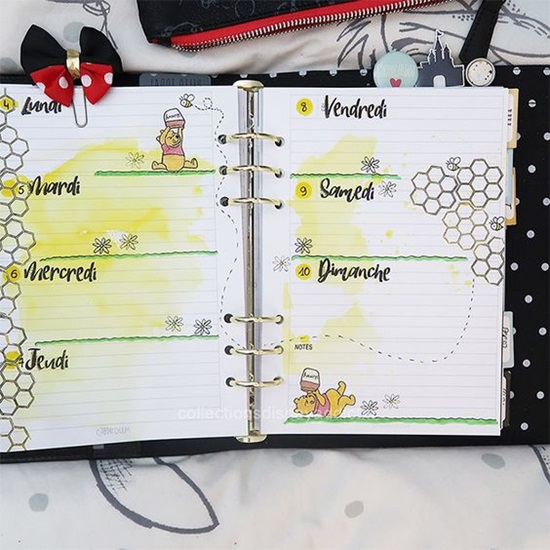 4 Lundi
5 Mardi
6 Mercredi
7 Jeudi
8 Vendredi
9 Samedi
10 Dimanche
NOTES